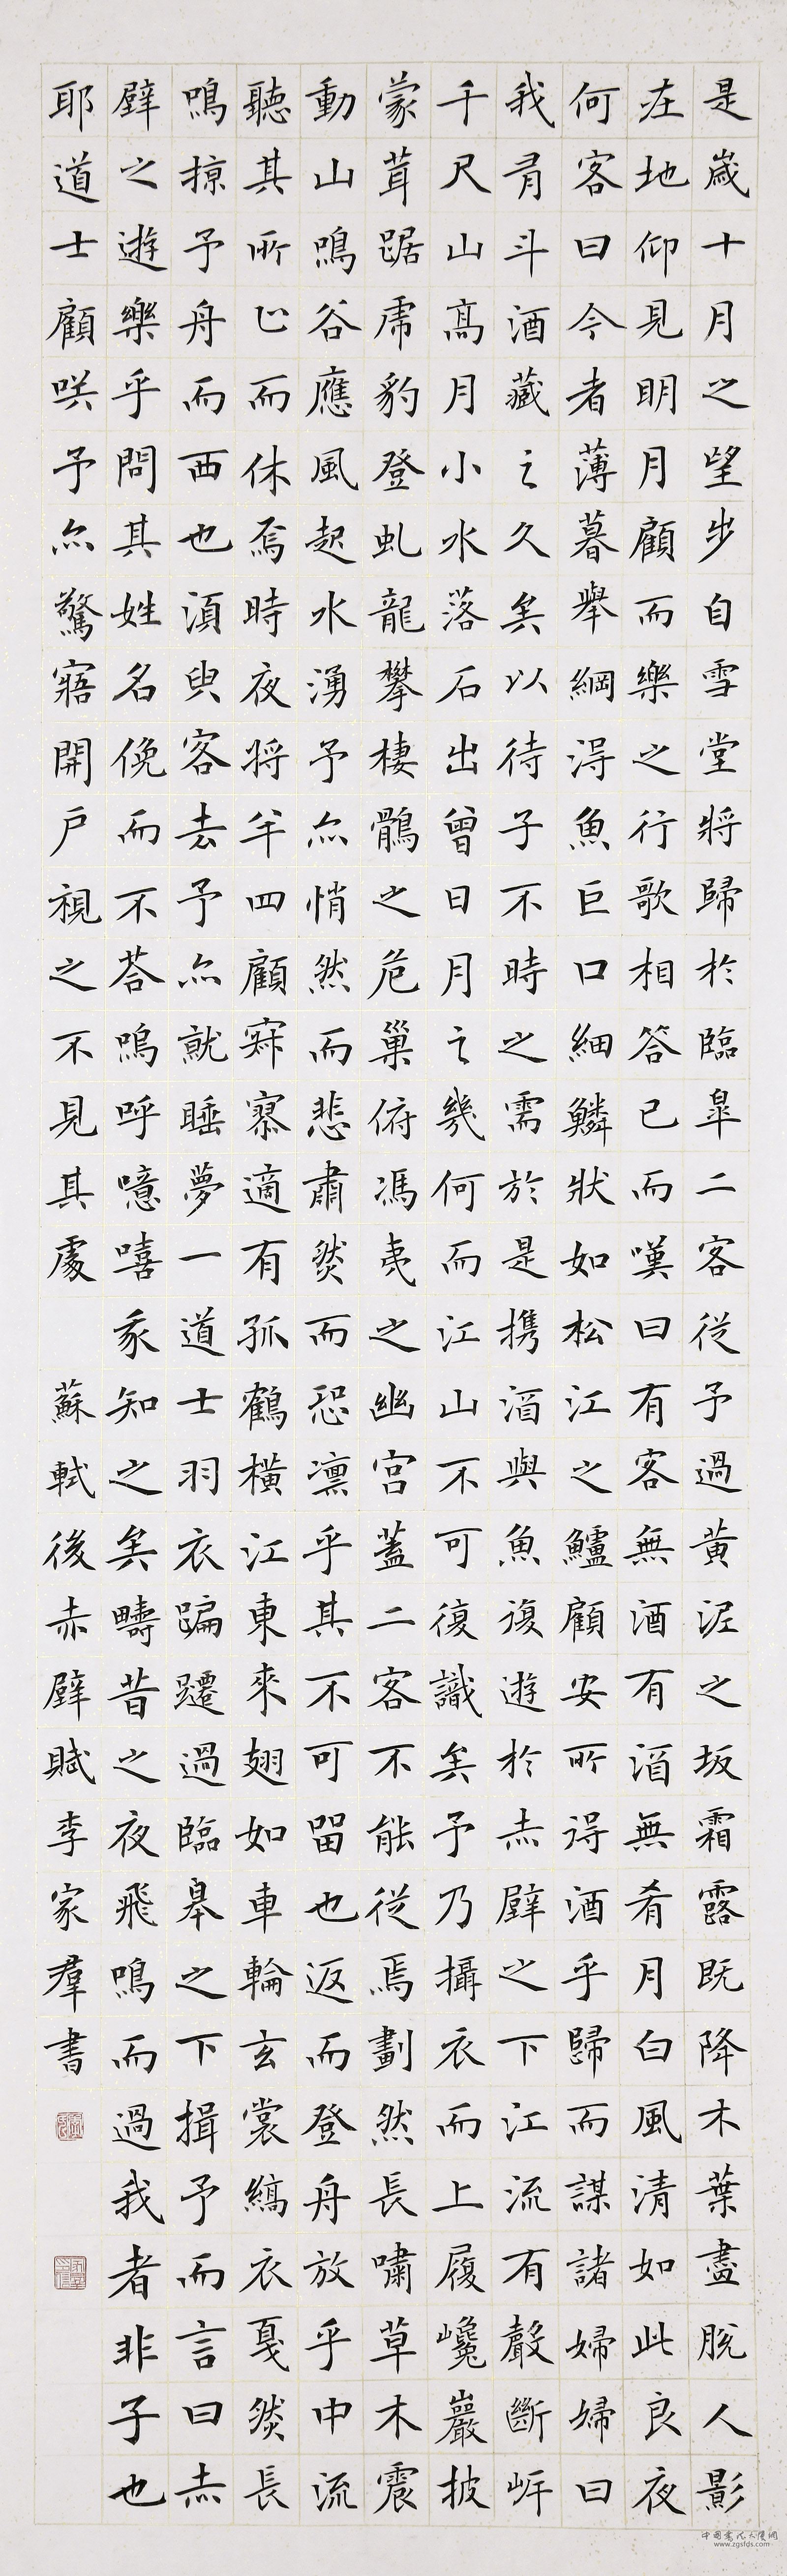 是歲十月之望步自雪堂將歸於臨皐二客從予過黃泥之坂霜露既降木葉盡脫人影
在地仰見明月顧而樂之行歌相答已而嘆曰有客無酒有酒無肴月白風清如此良夜
何客曰今者薄暮舉網得魚巨口細鱗狀如松江之鱸顧安所得酒乎歸而謀諸婦婦曰
我有斗酒藏之久矣以待子不時之需於是携酒與魚復遊於赤壁之下江流有聲斷岸
千尺山高月小水落石出曾日月之幾何而江山不可復識矣予乃攝衣而上履巉巖披
蒙茸踞虎豹登虬龍攀棲鶻之危巢俯馮夷之幽宮蓋二客不能從焉劃然長嘯草木震
動山鳴谷應風起水湧予亦悄然而悲肅然而恐凛乎其不可留也返而登舟放乎中流
聽其所止而休焉時夜將半四顧寂寥適有孤鶴橫江東來翅如車輪玄裳縞衣戛然長
鳴掠予舟而西也須臾客去予亦就睡夢一道士羽衣蹁躚過臨皋之下揖予而言曰赤
壁之遊樂乎問其姓名俛而不荅嗚呼噫嘻我知之矣疇昔之夜飛鳴而過我者非子也
耶道士顧咲予亦驚寤開戶視之不見其處 蘇軾後赤壁賦李家羣書
www.zgsfds.com